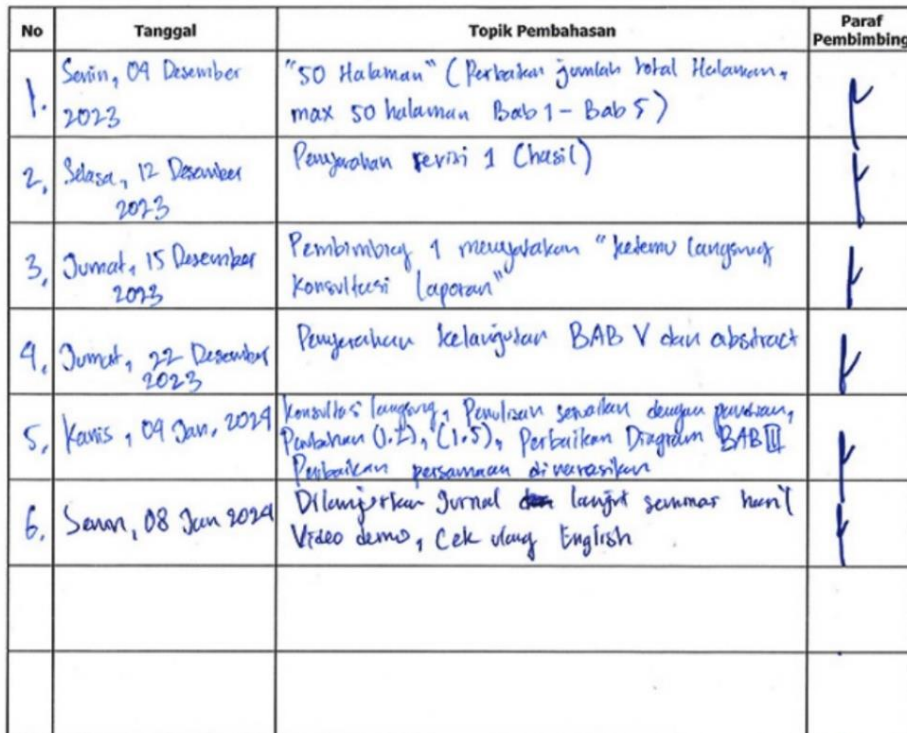 No Tanggal Topik Pembahasan Paraf
Pembimbing
1. Senin, 04 Desember
2023
"50 Halaman" (Perbaikan jumlah total Halaman,
max 50 halaman Bab 1 - Bab 5)
2, Selasa, 12 Desember
2023
Penyerahan revisi 1 (hasil)
3, Jumat, 15 Desember
2023
Pembimbing 1 menyatakan "ketemu langsung
Konsultasi laporan"
4, Jumat, 22 Desember
2023
Penyerahan kelanjutan BAB V dan abstract
5, Kamis, 04 Jan, 2024
konsultasi langsung, Penulisan sesuaikan dengan panduan,
(1.2), (1.5), Perbaikan Diagram BAB III
Perbaikan persamaan dinarasikan
6, Senin, 08 Jan 2024
Dilanjutkan Jurnal lanjut seminar hasil
Video demo, Cek ulang English